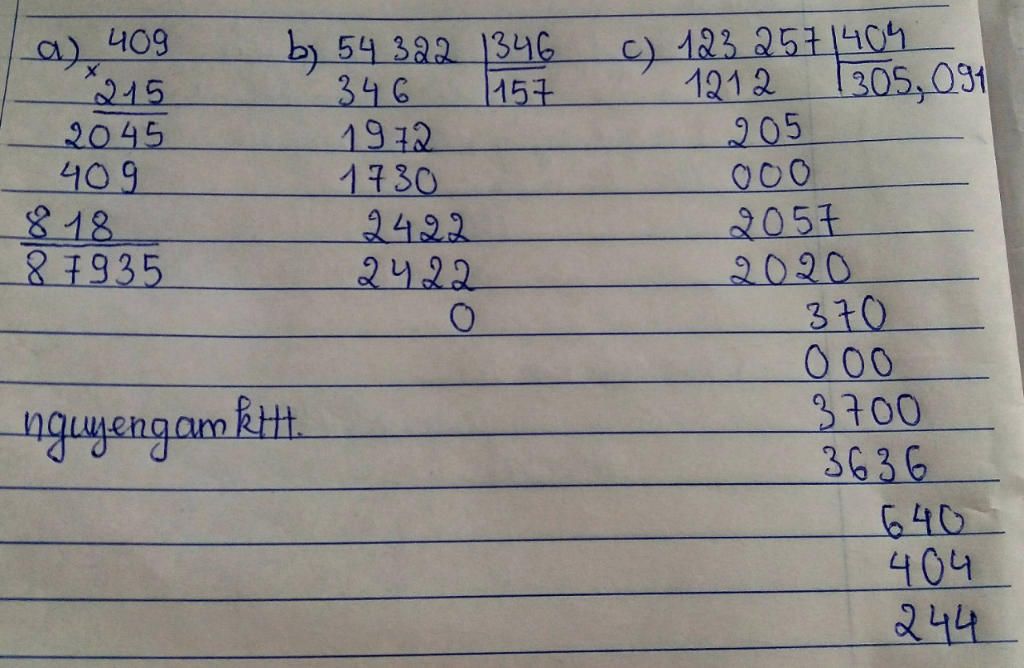 a) 409
×
215
2045
409
818
87935
b) 54 322 346
346 157
1972
1730
2422
2422
0
c) 123 257 404
1212 305,091
205
000
2057
2020
370
000
3700
3636
640
404
244
nguyengamkttt.